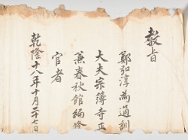 教旨
鄭弘淳為通訓
大夫宗簿寺正
兼春秋館編修
官者
乾隆十八年十月二十七日